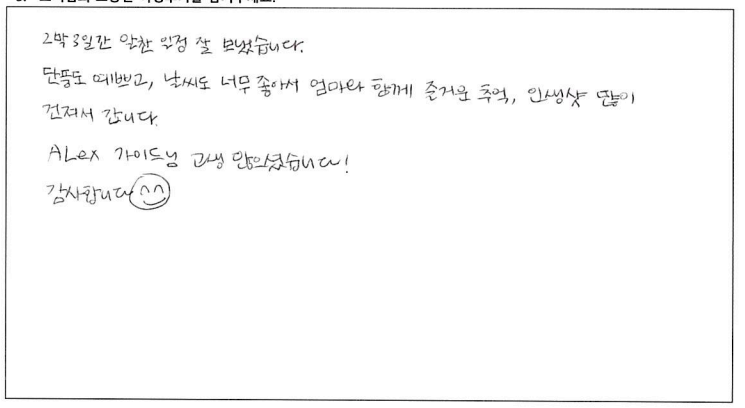 2박3일간 알찬 일정 잘 보냈습니다.
단풍도 예쁘고, 날씨도 너무 좋아서 엄마와 함께 즐거운 추억, 인생샷 많이
건져서 갑니다.
ALex 가이드님 고생 많으셨습니다!
감사합니다